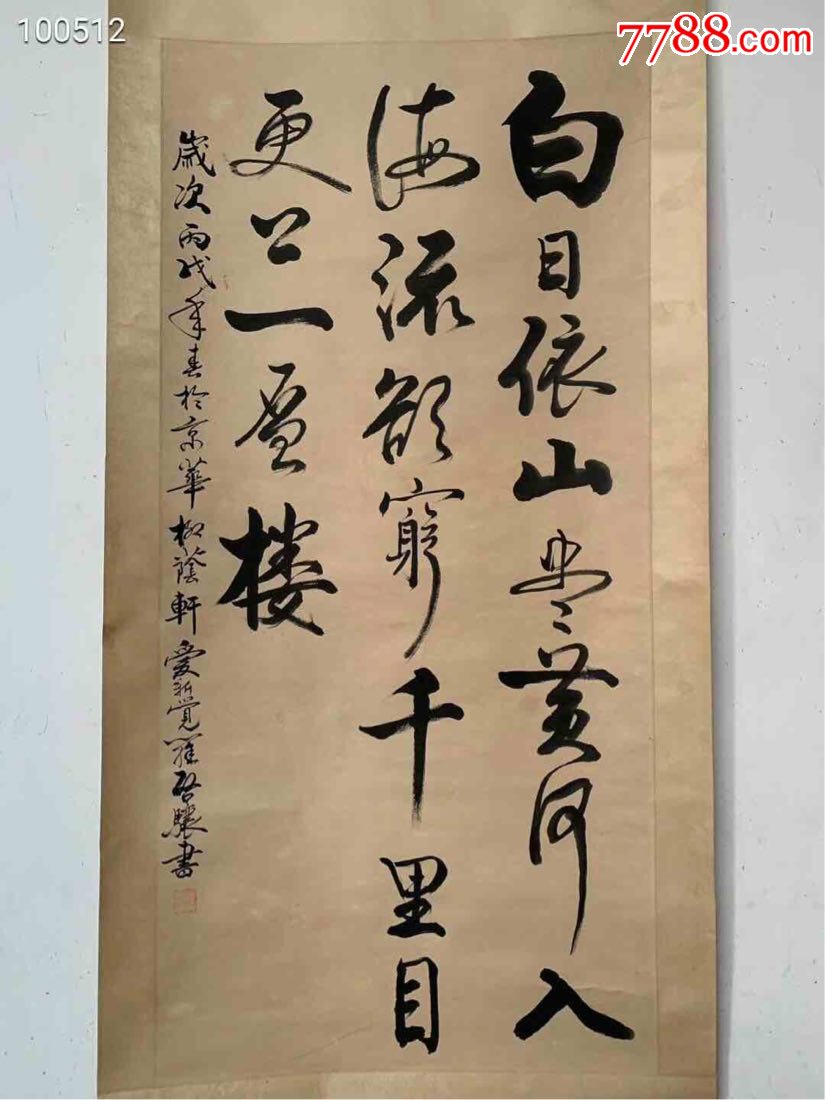 100512
7788.com
白日依山尽黄河入
海流欲窮千里目
更上一层楼
歲次丙戌年春於京華柳蔭軒愛新覺羅啓驤書